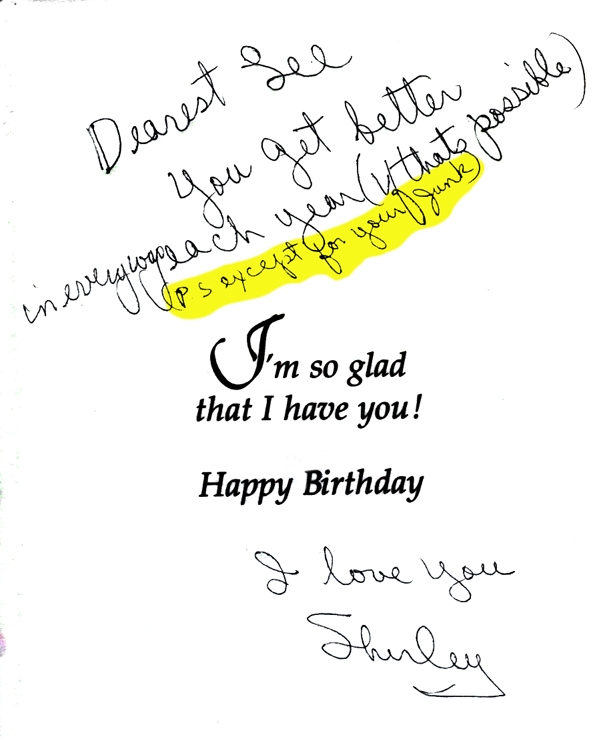 Dearest Lee
You get better
in every way each year (if thats possible)
(PS except for your junk)
I'm so glad
that I have you!
Happy Birthday
I love you
Shirley